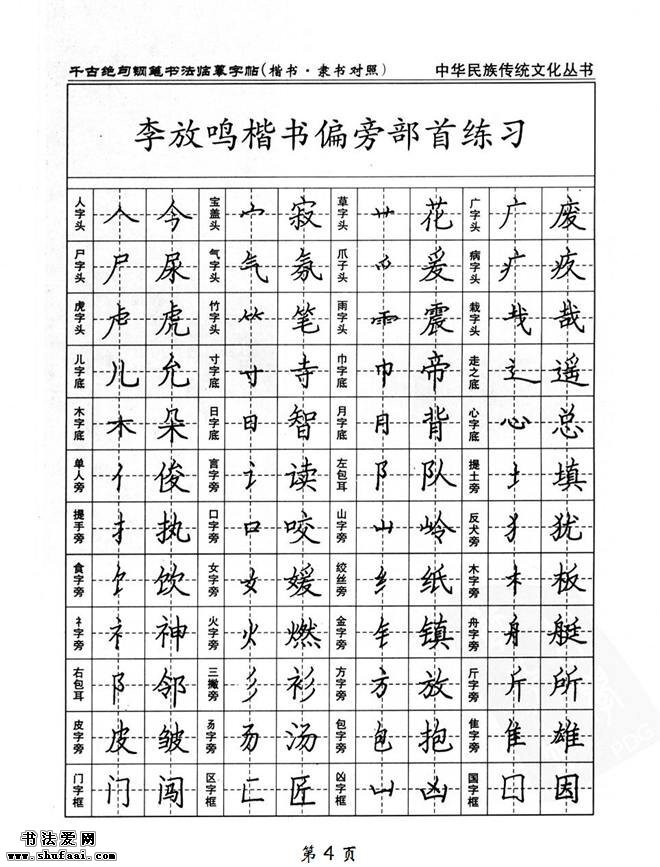 千古绝句钢笔书法临摹字帖(楷书·隶书对照) 中华民族传统文化丛书
李放鸣楷书偏旁部首练习
人字头 人 今 宝盖头 宀 寂 草字头 艹 花 广字头 广 废
尸字头 尸 尿 气字头 气 氛 爪子头 爫 爰 病字头 疒 疫
虎字头 虍 虎 竹字头 ⺮ 笔 雨字头 ⻗ 震 栽字头 𢦏 哉
儿字底 儿 允 寸字底 寸 寺 巾字底 巾 帝 走之底 辶 遥
木字底 木 朵 日字底 日 智 月字底 月 背 心字底 心 总
单人旁 亻 俊 言字旁 讠 读 左包耳 阝 队 提土旁 土 填
提手旁 扌 执 口字旁 口 咬 山字旁 山 岭 反犬旁 犭 犹
食字旁 饣 饮 女字旁 女 媛 绞丝旁 纟 纸 木字旁 木 板
礻字旁 礻 神 火字旁 火 燃 金字旁 钅 镇 舟字旁 舟 艇
右包耳 阝 邻 三撇旁 彡 衫 方字旁 方 放 斤字旁 斤 所
皮字旁 皮 皱 汤 包字旁 包 抱 隹字旁 隹 雄
门字框 门 闯 区字框 匚 匠 凶字框 凵 凶 国字框 囗 因
书法爱网
www.shufaai.com
第 4 页